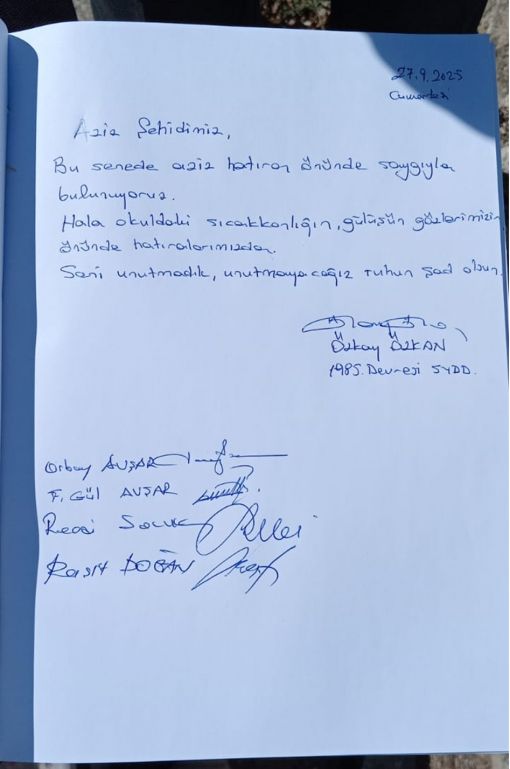 27.9.2025
Cumartesi
Aziz Şehidimiz,
Bu senede aziz hatıran önünde saygıyla
bulunuyoruz.
Hala okuldaki sıcakkanlığın, gülüşün gözlerimizin
önünde hatıralarımızda.
Seni unutmadık, unutmayacağız ruhun şad olsun.
Özkay ÖZKAN
1985.Devresi SYDD.
Orbay AVŞAR
F. Gül AVŞAR
Raşit DOĞAN